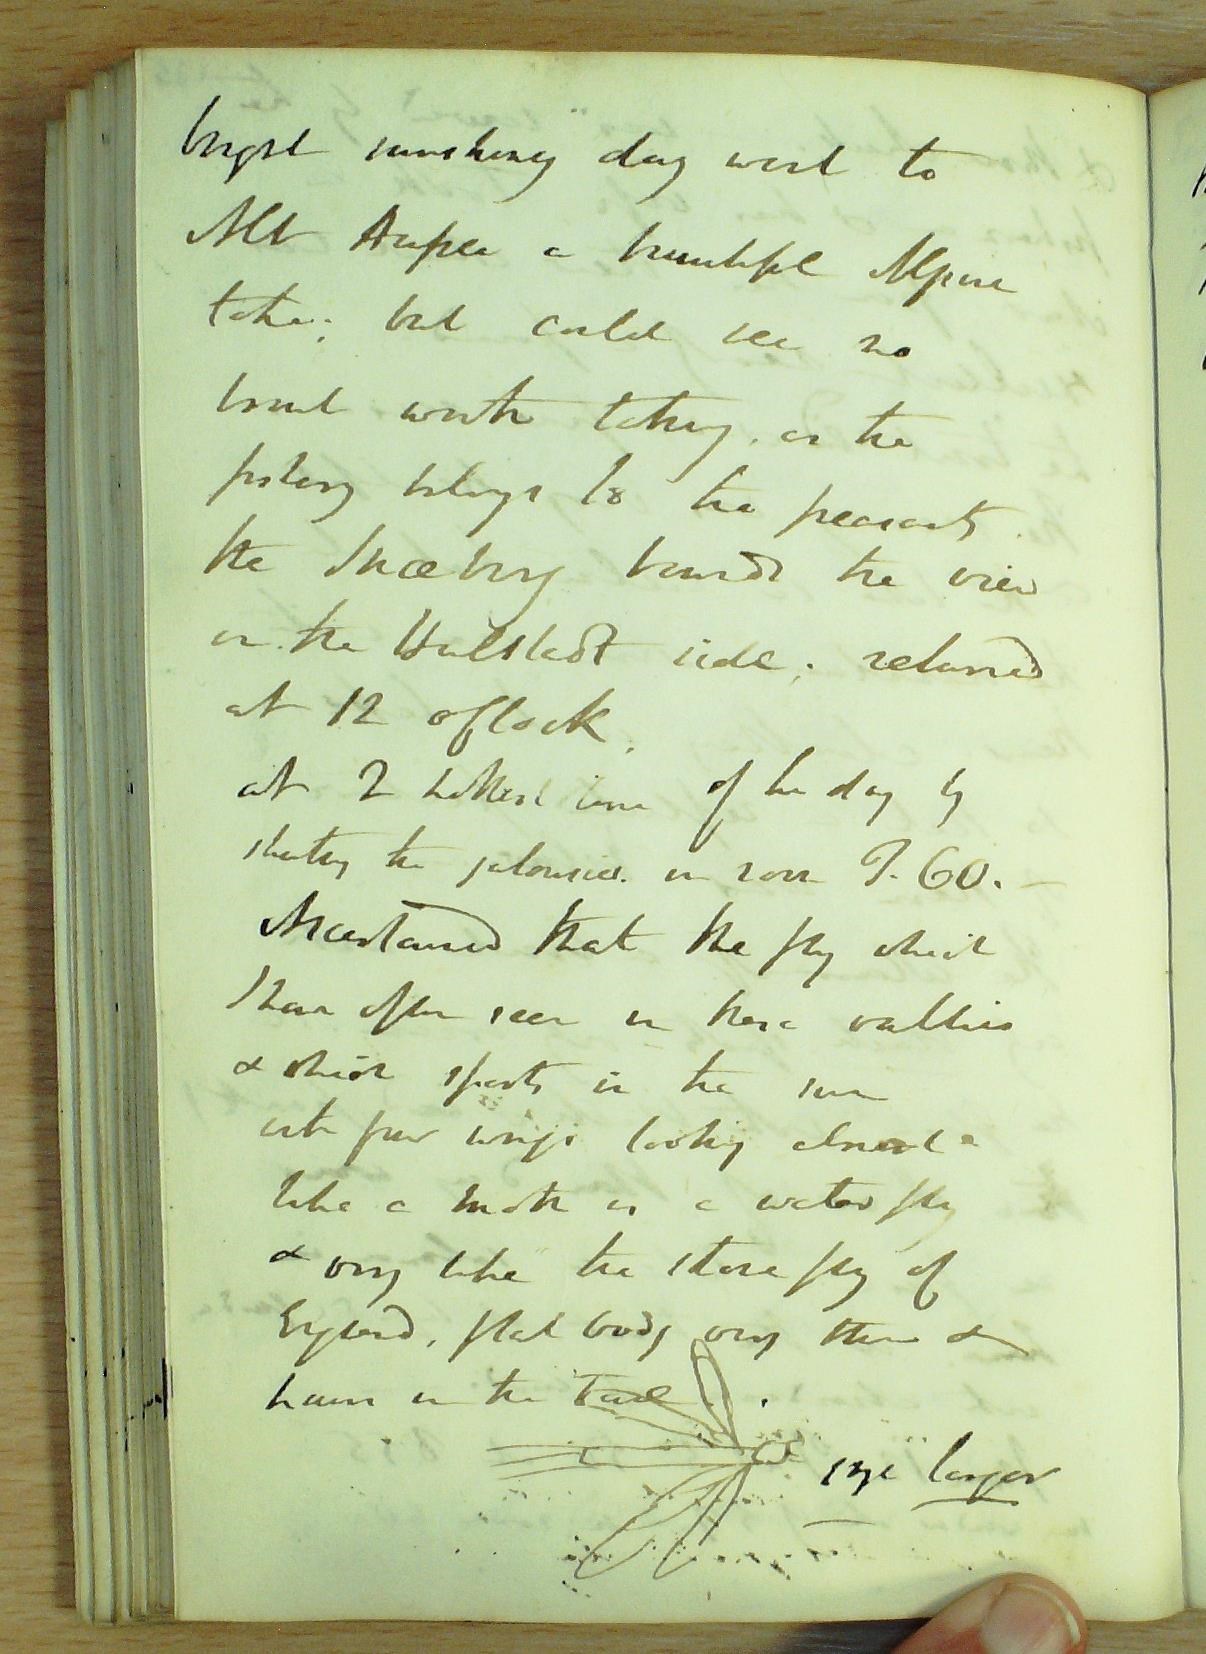 bright sunshiny day went to
Alt Aussee a beautiful Alpine
lake; but could see no
trout worth taking, as the
fishery belongs to the peasants.
the Snowberg bounds the view
on the Hallstadt side; returned
at 12 oflock.
at 2 hottest time of the day by
shutting the jalousies in room T. 60. —
Ascertained that the fly which
I have often seen in these vallies
& which sports in the sun
with four wings looking almost
like a moth is a water fly
& very like the stone fly of
England, flat body very thin &
hairs in the tail.
eye larger